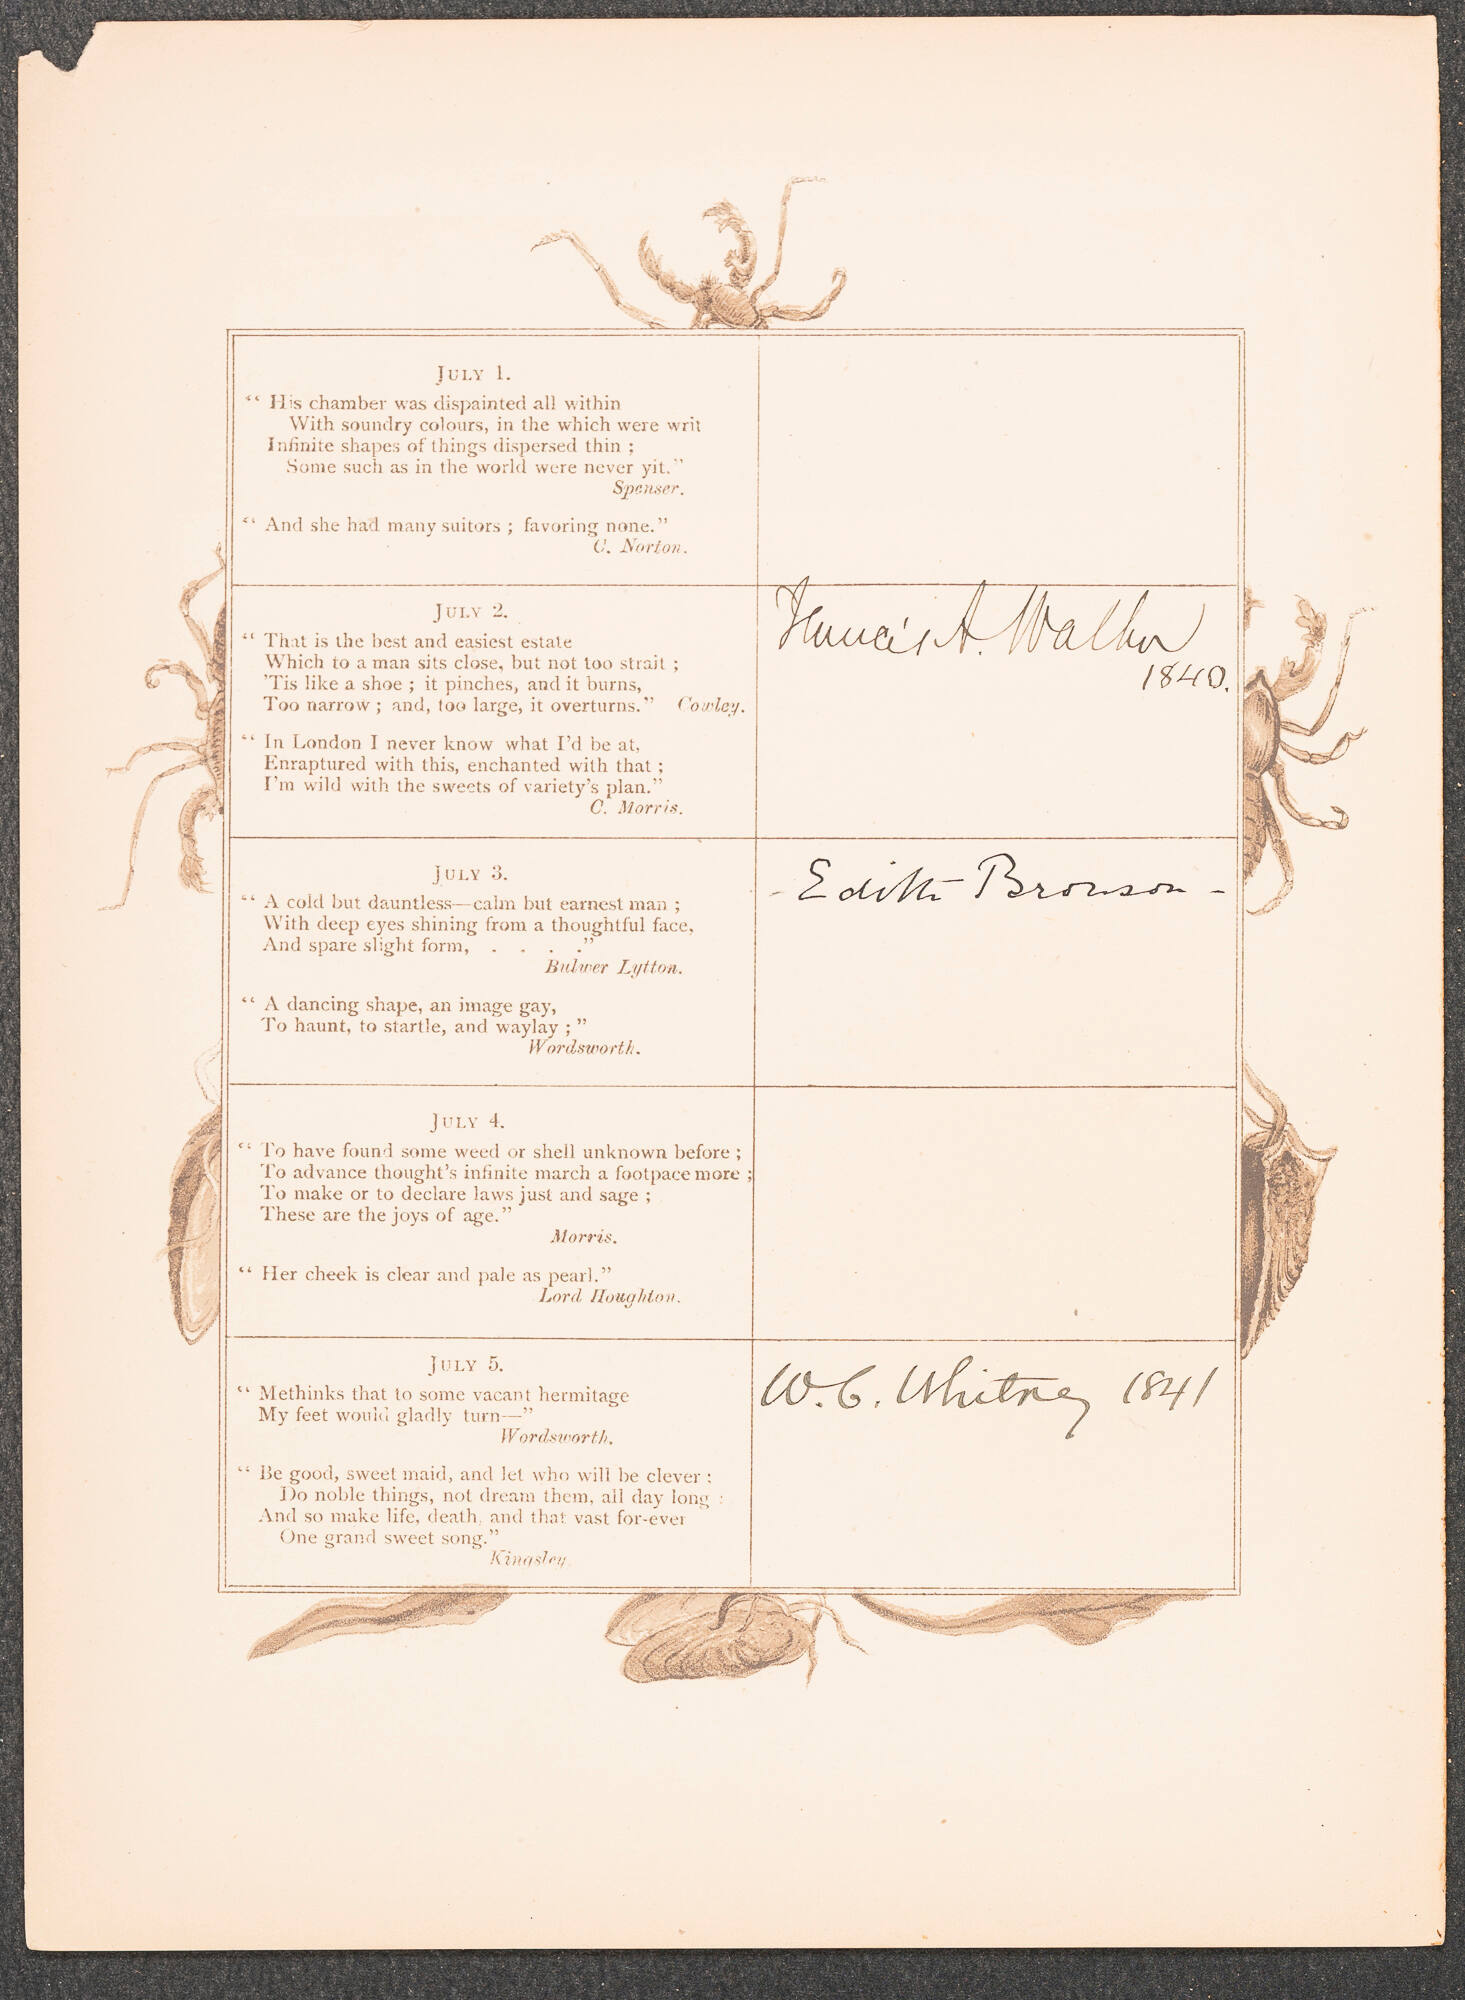 JULY 1.
“ His chamber was dispainted all within
With soundry colours, in the which were writ
Infinite shapes of things dispersed thin ;
Some such as in the world were never yit.”
Spenser.
“ And she had many suitors ; favoring none.”
C. Norton.
JULY 2.
Francis A. Walker
1840.
“ That is the best and easiest estate
Which to a man sits close, but not too strait ;
’Tis like a shoe ; it pinches, and it burns,
Too narrow ; and, too large, it overturns.” Cowley.
“ In London I never know what I’d be at,
Enraptured with this, enchanted with that ;
I’m wild with the sweets of variety’s plan.”
C. Morris.
JULY 3.
- Edith Bronson -
“ A cold but dauntless—calm but earnest man ;
With deep eyes shining from a thoughtful face,
And spare slight form, . . . .”
Bulwer Lytton.
“ A dancing shape, an image gay,
To haunt, to startle, and waylay ; ”
Wordsworth.
JULY 4.
“ To have found some weed or shell unknown before ;
To advance thought’s infinite march a footpace more ;
To make or to declare laws just and sage ;
These are the joys of age.”
Morris.
“ Her cheek is clear and pale as pearl.”
Lord Houghton.
JULY 5.
W. C. Whitney 1841
“ Methinks that to some vacant hermitage
My feet would gladly turn—”
Wordsworth.
“ Be good, sweet maid, and let who will be clever ;
Do noble things, not dream them, all day long :
And so make life, death, and that vast for-ever
One grand sweet song.”
Kingsley.